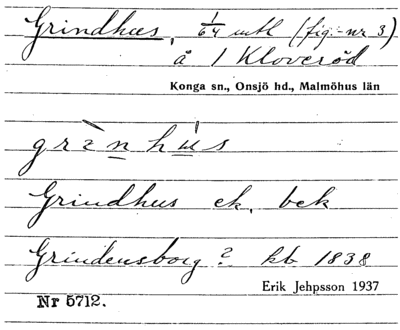 Grindhus, 1/64 mtl (fig.-nr 3)
å 1 Kloveröd
Konga sn., Onsjö hd., Malmöhus län
grìnhu̍s
Grindhus ek. bek
Grindensborg? kb 1838
Erik Jehpsson 1937
Nr 5712.